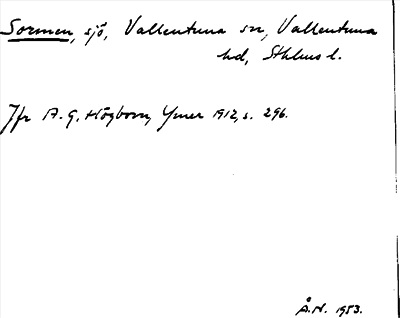 Sormen, sjö, Vallentuna sn, Vallentuna
hd, Sthlms l.
Jfr A. G. Högbom, Ymer 1912, s. 296.
Å.N. 1953.